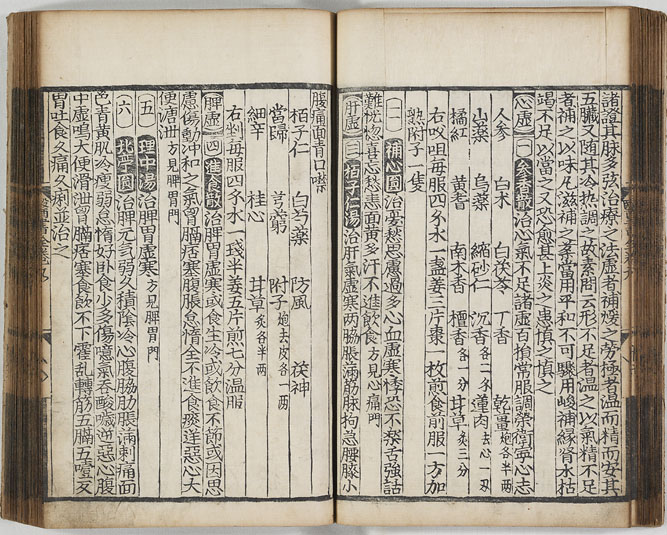 諸證其脉多弦治療之法虛者補煖之勞極者温而精而安其
五臟又随其冷热調之故素問云形不足者温之以氣精不足
者補之以味凡滋補之藥當用平和不可驟用峻補縁腎水枯
竭不足以當之又恐愈甚上炎之患慎之慎之
心虛 一 參香散治心氣不足諸虛百損常服調榮衛寧心志
人參 白朮 白茯苓 丁香 乾薑炮各半两
山藥 烏藥 縮砂仁 沉香各二分 蓮肉去心一两
橘紅 黄耆 南木香 檀香各一分 甘草炙三分
右㕮咀每服四分水一盞姜三片棗一枚煎食前服一方加
熟附子一隻
二 補心圓治憂愁思慮過多心血虛寒悸恐不樂舌強話
難恍惚喜忘愁恚面黄多汗不進飲食方見心痛門
肝虛 三 栢子仁湯治肝氣虛寒两脇脹滿筋脉拘急腰膝小
腹痛面青口噤
栢子仁 白芍藥 防風 茯神
當歸 芎藭 附子炮去皮各一两
細辛 桂心 甘草炙各半两
右剉每服四分水一琖半姜五片煎七分温服
脾虛 四 進食散治脾胃虛寒或食生冷或飲食不節或因思
慮傷動冲和之氣胷膈痞塞腹脹怠惰全不進食痰逆惡心大
便溏泄方見脾胃門
五 理中湯治脾胃虛寒方見脾胃門
六 北亭圓治脾元氣弱久積陰冷心腹脇肋脹滿刺痛面
色青黄肌冷瘦弱怠惰好卧食少多傷噫氣吞酸噦逆惡心腹
中虛鳴大便滑泄胷膈痞塞食飲不下霍乱轉筋五膈五噎
胃吐食久痛久痢並治之